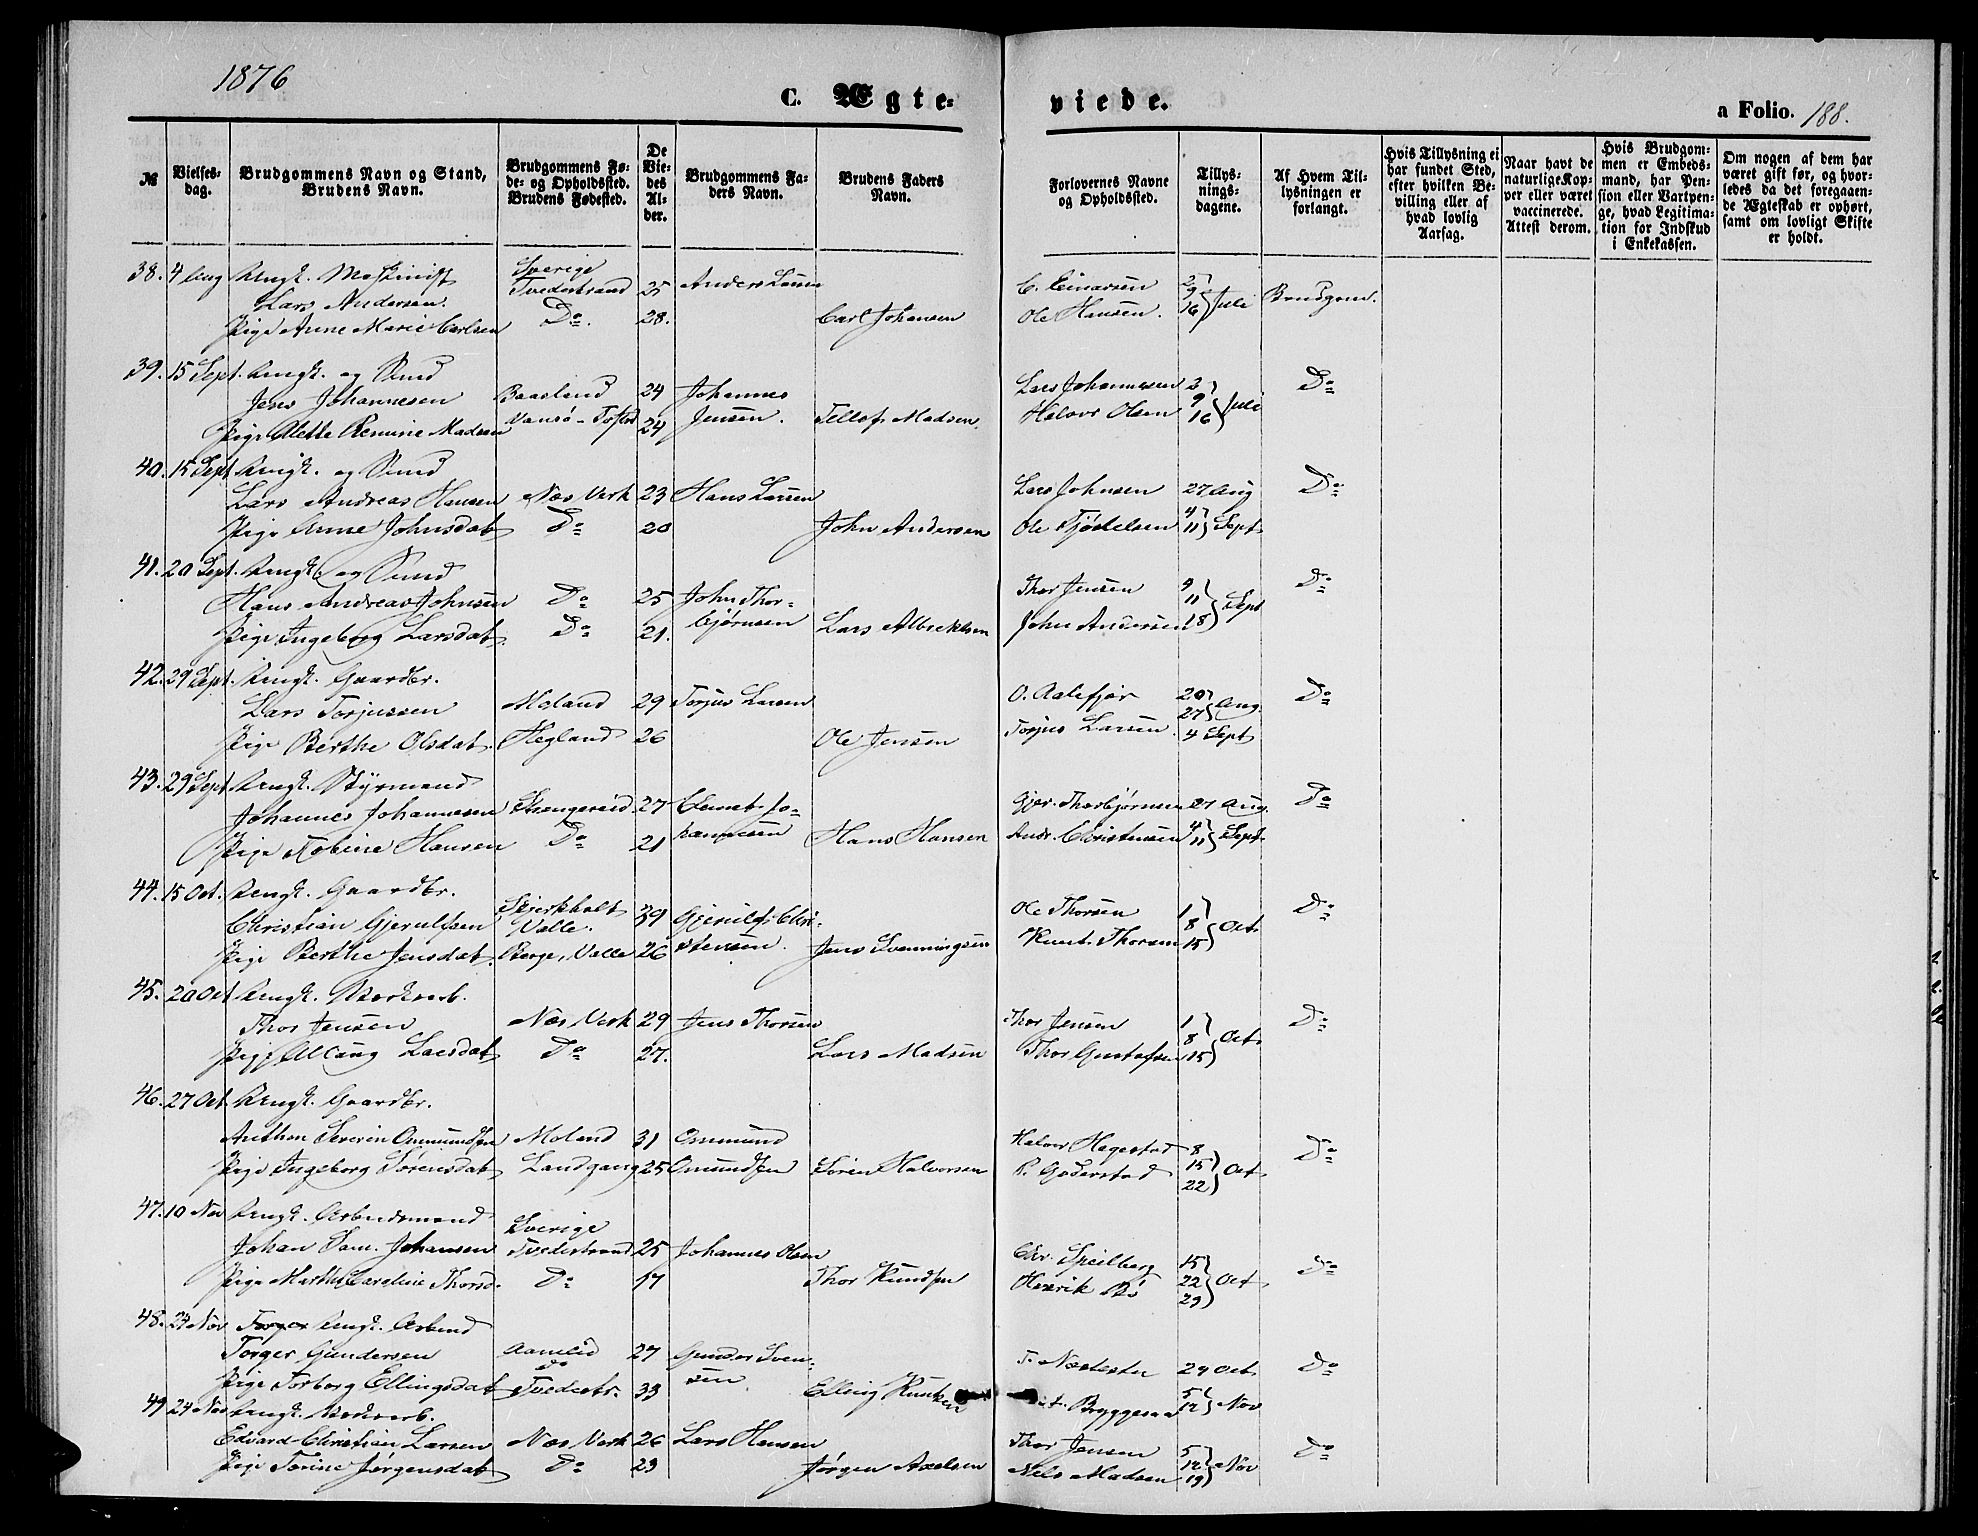 1876
C. Ægte-
viede.
a Folio. 188.
№
Vielses-
dag.
Brudgommens Navn og Stand,
Brudens Navn.
Brudgommens Fø-
de- og Opholdssted.
Brudens Fødested.
De
Vie-
des
Al-
der.
Brudgommens Fa-
ders Navn.
Brudens Faders
Navn.
Forlovernes Navne
og Opholdssted.
Tillys-
nings-
dagene.
Af Hvem Til-
lysningen er
forlangt.
Hvis Tillysning ei
har fundet Sted,
efter hvilken Be-
villing eller af
hvad lovlig
Aarsag.
Naar havt de
naturlige Kop-
per eller været
vaccinerede.
Attest derom.
Hvis Brudgom-
men er Embeds-
mand, har Pen-
sion eller Vartpen-
ge, hvad Legitima-
tion for Indskud
i Enkekassen.
Om nogen af dem har
været gift før, og hvor-
ledes da det foregaaen-
de Ægteskab er ophørt,
samt om lovligt Skifte
er holdt.
38. 4 Aug Ungk. Maskinist Sverige
Lars Andersen. Tvedestrand 25 Anders Larsen C. Einarsen 2 9 Juli Brudgom.
Pige Anne Marie Carlsen Do. 28. Carl Johansen Ole Hansen. 16
39. 15 Sept. Ungk. og
Jens Johannesen Baasland 24 Johannes Lars Johannesen 2 9 Juli Do
Pige Mette Madsen Vansø- 24 Jensen. Tellef Madsen. Halvor Olsen 16
40. 15 Sept Ungk. og
Lars Andreas Hansen Næs Verk 23 Hans Larsen Lars Johnsen 27 Aug Do
Pige Anne Johnsdat Do 20 John Andersen Ole Tjøstelsen 4 11 Sept
41. 20 Sept. Ungk. og
Hans Andreas Johnsen Do 25 John Thor- Thor Jensen 9 11 Sept Do
Pige Ingeborg Larsdat. Do 21. bjørnsen Lars Albrektsen John Andersen 18
42. 29 Sept. Ungk. Gaardbr.
Lars Torjussen Moland 29 Torjus Larsen O. Aalefjær 20 27 Aug. Do
Pige Berthe Olsdat. Hegland 26 Ole Jensen Torjus Larsen. 4 Sept
43. 29 Sept Ungk. Styrmand
Johannes Johannesen Strengereid 27 Jo- Gjer. Thorbjørnsen 27 Aug. Do
Pige Tobine Hansen Do 21 hannesen Hans Hansen Andr. Christensen 4 11 Sept.
44. 15 Oct. Ungk. Gaardbr. Skjerkholt
Christian Gjerulfsen Valle. 39 Gjerulf Chri- Ole Thorsen 1 8 Oct Do
Pige Berthe Jensdat. Berge, Valle 26 stensen. Jens Svenningsen Knut Thorsen 15
45. 20 Oct Ungk. Værksarb.
Thor Jensen Næs Verk 29 Jens Thorsen Thor Jensen 1 8 Oct Do
Pige Larsdat Do 27. Lars Madsen Thor Gustafsen 15
46. 27 Oct. Ungk. Gaardbr.
Anthon Severin Ommundsen Moland 31 Ommund Halvor Hagestad 8 15 Oct Do
Pige Ingeborg Sørensdat Landgang 25 Omundsen Søren Halvorsen P. Goderstad 22
47. 10 Nov Ungk. Arbeidsmand Sverige
Johan Sam. Johansen Tvedestrand 25 Johannes Olsen Chr. Speilberg 15 22 Oct Do
Pige Marthe Caroline Thorsd. Do 17 Thor Knudsen Henrik Bö 29
48. 24 Nov Torger Ungk. Arbeid
Torger Gundersen Aamlid 27 Gunder Sven- T. Næstester 29 Oct Do
Do
Pige Torborg Ellingsdat Tvedestr. 33 sen Elling Bryggesaa 5 12 Nov
49 24 Nov Ungk. Værksarb.
Edvard Christian Larsen Næs Verk 26 Lars Hansen Thor Jensen 5 12 Nov Do
Pige Torine Jørgensdat Do 23 Jørgen Axelsen Nils Madsen 19